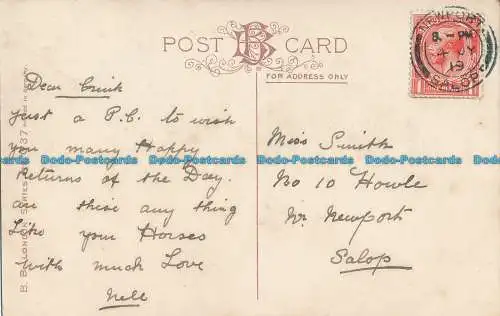 POST CARD
FOR ADDRESS ONLY
NEWPORT
8 - PM
JY
19
SALOP
Dear
Just a P.C. to wish
you many Happy
Returns of the Day.
are these any thing
Like your Horses
with much Love
Nell
Miss Smith
No 10 Howle
Nr Newport
Salop
B. B. LONDON SERIES
Dodo-Postcards Dodo-Postcards Dodo-Postcards Dodo-Postcards
Dodo-Postcards Dodo-Postcards Dodo-Postcards Dodo-Postcards